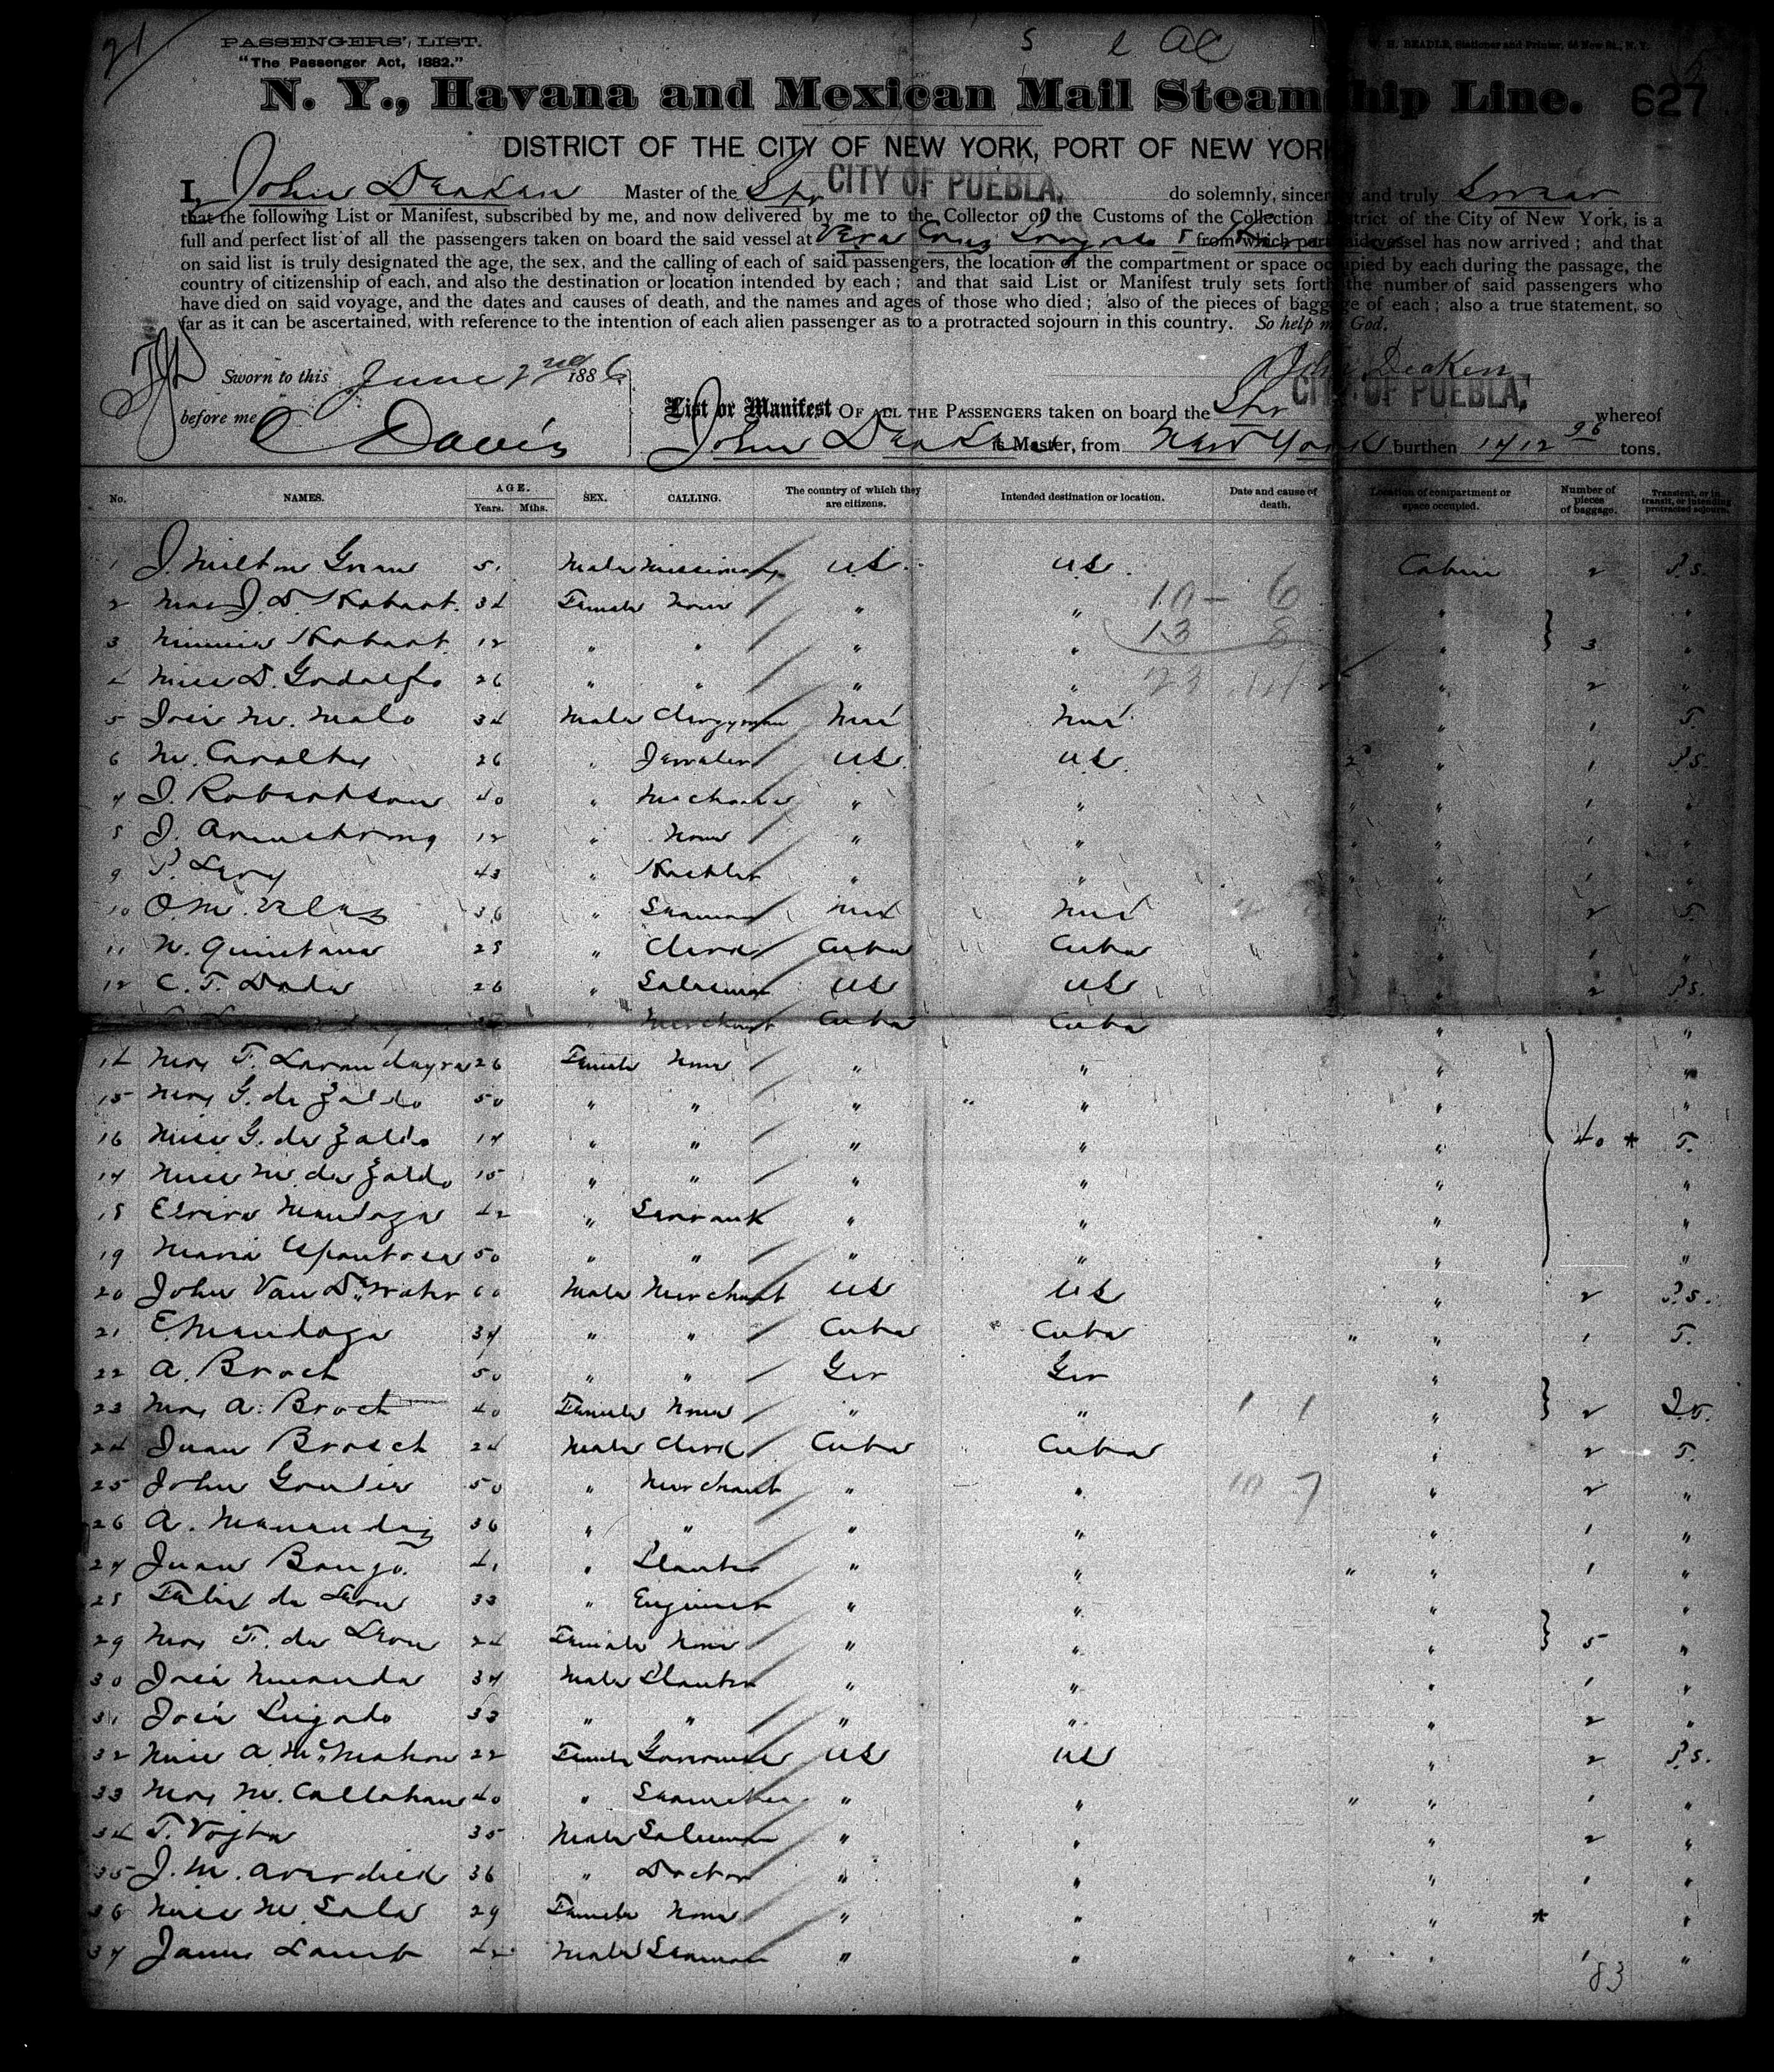 91
PASSENGERS' LIST.
"The Passenger Act, 1882."
W. H. BEADLE, Stationer and Printer, New St., N. Y.
N. Y., Havana and Mexican Mail Steamship Line. 627
DISTRICT OF THE CITY OF NEW YORK, PORT OF NEW YORK
I, John Deaken Master of the Str CITY OF PUEBLA, do solemnly, sincerely and truly Swear
that the following List or Manifest, subscribed by me, and now delivered by me to the Collector of the Customs of the Collection District of the City of New York, is a
full and perfect list of all the passengers taken on board the said vessel at Vera Cruz from which port said vessel has now arrived; and that
on said list is truly designated the age, the sex, and the calling of each of said passengers, the location of the compartment or space occupied by each during the passage, the
country of citizenship of each, and also the destination or location intended by each; and that said List or Manifest truly sets forth the number of said passengers who
have died on said voyage, and the dates and causes of death, and the names and ages of those who died; also of the pieces of baggage of each; also a true statement, so
far as it can be ascertained, with reference to the intention of each alien passenger as to a protracted sojourn in this country. So help me God.
Sworn to this June 2nd 1886 John Deaken
before me C Davis
List or Manifest OF ALL THE PASSENGERS taken on board the Str CITY OF PUEBLA, whereof
John Deaken is Master, from New York burthen tons.
No. NAMES. AGE. Years. Mths. SEX. CALLING. The country of which they are citizens. Intended destination or location. Date and cause of death. Location of compartment or space occupied. Number of pieces of baggage. Transient, or in transit, or intending protracted sojourn.
1 J. Milton Male Missionary US US Cabin 2 P.S.
2 Mrs J. D. Hobart 34 Female None " " " "
3 Minnie Hobart 12 " " " " " 3 "
4 Miss D. Godolfo 26 " " " " " 2 "
5 José M. Malo 34 Male Clergyman Mex Mex " 1 T.
6 M. 26 " Jeweler US US " 1 P.S.
7 J. Robertson 40 " Mechanic " " " 1 "
8 J. Armstrong 12 " None " " " 1 "
9 P. Levy 43 " " " " 1 "
10 O. M. 36 " Seaman Mex Mex " 2 T.
11 N. Quintana 25 " Clerk Cuba Cuba " 1 "
12 C. T. 26 " Salesman US US " 2 P.S.
" Merchant Cuba Cuba " "
14 Mrs F. 26 Female None " " " "
15 Mrs G. de Zaldo 50 " " " " " "
16 Miss G. de Zaldo 17 " " " " " 40 * T.
17 Miss M. de Zaldo 15 " " " " " "
18 Elvira Mendoza 42 " Servant " " " "
19 Maria 50 " " " " " "
20 John Van D. Water 60 Male Merchant US US " 2 P.S.
21 E Mendoza 37 " " Cuba Cuba " 1 T.
22 A. Broch 50 " " Ger Ger "
23 Mrs A. Broch 40 Female None " " " 2
24 Juan Brosch 24 Male Clerk Cuba Cuba " 2 T.
25 John 50 " Merchant " " " 2 "
26 A. 36 " " " " " 1 "
27 Juan 41 " Planter " " " 1 "
28 Felix de Leon 33 " Engineer " " " "
29 Mrs F. de Leon 24 Female None " " " 5 "
30 José Miranda 37 Male Planter " " " 1 "
31 José 33 " " " " " 2 "
32 Miss A. McMahon 22 Female Governess US US " 2 P.S.
33 Mrs M. Callahan 40 " " " " 1 "
34 T. Vojta 35 Male Salesman " " " 2 "
35 J. M. 36 " Doctor " " " 1 "
36 Miss M. Sala 29 Female None " " " * "
37 James Lamb Male Seaman " " " 1 "
83